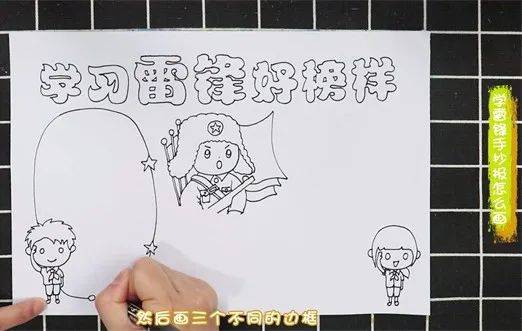 学习雷锋好榜样
学雷锋手抄报怎么画
然后画三个不同的边框